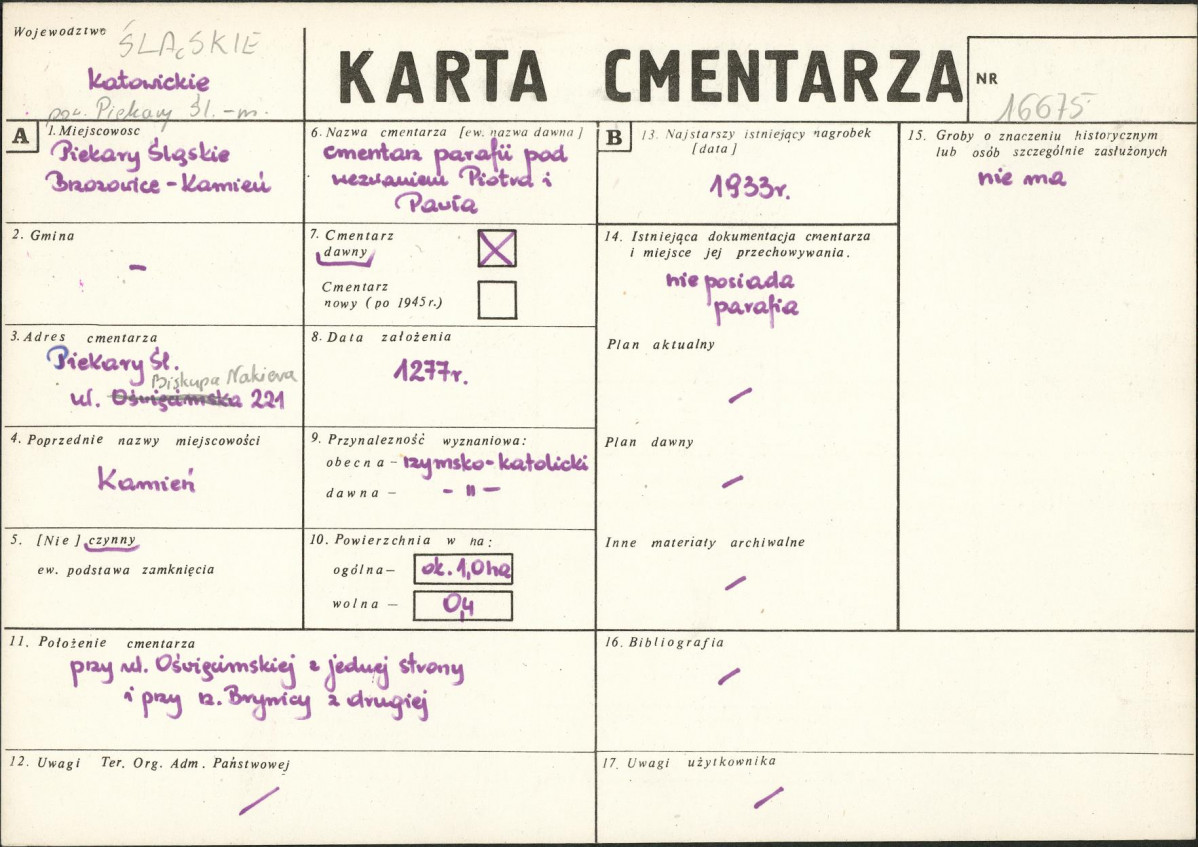 Wojewodztwo
ŚLĄSKIE
Katowickie
pow. Piekary Śl. -m.
KARTA CMENTARZA
NR
16675
A
1. Miejscowosc
Piekary Śląskie
Brzozowice - Kamień
2. Gmina
-
3. Adres cmentarza
Piekary Śl.
Biskupa Nakiera
ul. Oświęcimska 221
4. Poprzednie nazwy miejscowości
Kamień
5. [Nie] czynny
ew. podstawa zamknięcia
6. Nazwa cmentarza [ew. nazwa dawna]
cmentarz parafii pod
wezwaniem Piotra i
Pawła
7. Cmentarz
dawny
X
Cmentarz
nowy (po 1945 r.)
8. Data założenia
1277r.
9. Przynależność wyznaniowa:
obecna - rzymsko-katolicki
dawna - - " -
10. Powierzchnia w ha:
ogólna - ok. 1,0 ha
wolna - 0,4
11. Położenie cmentarza
przy ul. Oświęcimskiej z jednej strony
i przy rz. Brynicy z drugiej
12. Uwagi Ter. Org. Adm. Państwowej
/
B
13. Najstarszy istniejący nagrobek
[data]
1933r.
14. Istniejąca dokumentacja cmentarza
i miejsce jej przechowywania.
nie posiada
parafia
Plan aktualny
/
Plan dawny
/
Inne materiały archiwalne
/
15. Groby o znaczeniu historycznym
lub osób szczególnie zasłużonych
nie ma
16. Bibliografia
/
17. Uwagi użytkownika
/